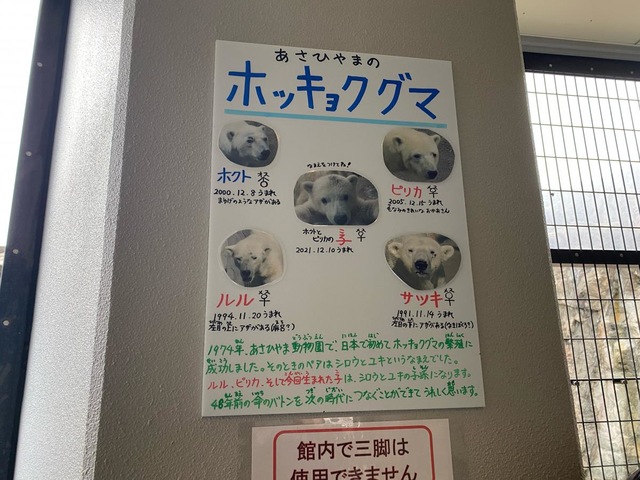 あさひやまの
ホッキョクグマ
ホクト
2000.12.8うまれ
まゆげのようなアザがある
なまえをつけてね!
ホクトと
ピリカの子
2021.12.10うまれ
ピリカ
2005.12.15うまれ
ルル
1994.11.20うまれ
サツキ
1991.11.14うまれ
1974年、あさひやま動物園で、日本で初めてホッキョクグマの繁殖に
成功しました。そのときのペアはシロウとユキというなまえでした。
ルル、ピリカ、そして今回生まれた子は、シロウとユキの子孫になります。
48年前の命のバトンを次の時代につなぐことができてうれしく思います。
館内で三脚は
使用できません